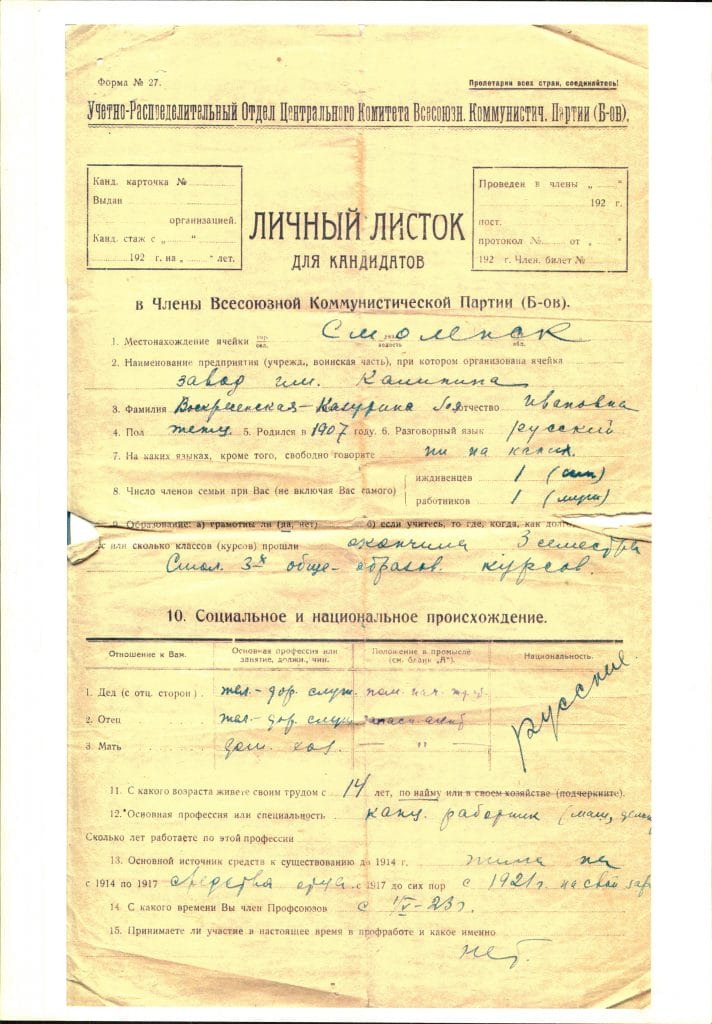 Форма № 27.
Пролетарии всех стран, соединяйтесь!
Учетно-Распределительный Отдел Центрального Комитета Всесоюзн. Коммунистич. Партии (Б-ов).
Канд. карточка №
Выдан
организацией.
Канд. стаж с „ “
192 г. на „ “ лет.
Проведен в члены „ “
192 г.
пост.
протокол № от „ “
192 г. Член. билет №
ЛИЧНЫЙ ЛИСТОК
ДЛЯ КАНДИДАТОВ
в Члены Всесоюзной Коммунистической Партии (Б-ов).
1. Местонахождение ячейки Смоленск
2. Наименование предприятия (учрежд., воинская часть), при котором организована ячейка
завод им. Калинина
3. Фамилия Воскресенская-Казутина Зоя Отчество Ивановна
4. Пол женщ. 5. Родился в 1907 году. 6. Разговорный язык русский
7. На каких языках, кроме того, свободно говорите ни на каких.
8. Число членов семьи при Вас (не включая Вас самого)
иждивенцев 1 (сын)
работников 1 (муж)
9. Образование: а) грамотны ли (да, нет) б) если учитесь, то где, когда, как долго
или сколько классов (курсов) прошли окончила 3 семестра
Смол. 3-х обще-образов. курсов.
10. Социальное и национальное происхождение.
Отношение к Вам.
Основная профессия или занятие, должн., чин.
Положение в промысле (см. бланк „А“).
Национальность.
1. Дед (с отц. сторон) жел-дор. служ. пом. нач.
2. Отец жел-дор. служ.
3 Мать дом. хоз. — " —
русские
11. С какого возраста живете своим трудом с 14 лет, по найму или в своем хозяйстве (подчеркните).
12. Основная профессия или специальность канц. работник (маш,
Сколько лет работаете по этой профессии
13. Основной источник средств к существованию до 1914 г. жила на
с 1914 по 1917 средства отца с 1917 до сих пор с 1921 г. на свой зар
14. С какого времени Вы член Профсоюзов с 1/V-23 г.
15. Принимаете ли участие в настоящее время в профработе и какое именно
нет.